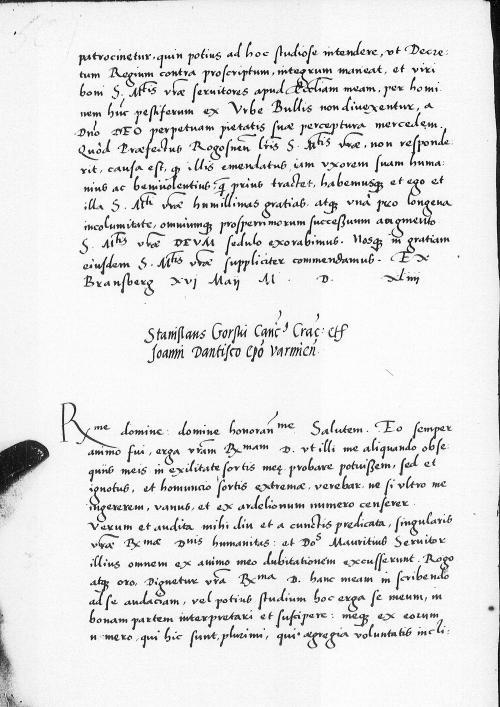 patrocinetur, quin potius ad hoc studiose intendere, vt Decre:
tum Regium contra proscriptum, integrum maneat, et viri
boni S. Mtis vræ seruitores apud Eccliam meam, per homi
nem huc pestiferum ex Vrbe Bullis non diuexentur, a
Dno DEO perpetuam pietatis suæ perceptura mercedem.
Quod Præfectus Rogosnen ltris S. Mtis vræ, non responde
rit, causa est, q illis emendatus, iam vxorem suam huma
nius ac beniuolentius, q prius tractet, habemusq et ego et
illa S. Mti vræ humillimas gratias, atq vna pro longeua
incolumitate, omniumq prosperrimorum successuum augmento
S. Mtis vræ DEVM sedulo exorabimus. Nosq in gratiam
eiusdem S. Mtis vræ suppliciter commendamus. EX
Bransberg XVI Maij M. D. XLiiij
Stanislaus Gorski Canc9 Crac: etc
Joanni Dantisco Epo Varmien
Rme domine: domine honoranme Salutem. Eo semper
animo fui, erga vram Rmam D. vt illi me aliquando obse:
quijs meis in exilitate sortis meę probare potuissem, sed et
ignotus, et homuncio sortis extremæ, verebar, ne si vltro me
ingererem, vanus, et ex ardelionum numero censerer.
Verum et audita mihi diu et a cunctis predicata, singularis
vræ Rmæ Dnis humanitas: et Dos Mauritius Seruitor
illius omnem ex animo meo dubitationem excusserunt. Rogo
atq oro, Dignetur vra Rma D. hanc meam in scribendo
ad se audaciam, vel potius studium hoc erga se meum, in
bonam partem interpretari et suscipere: meq ex eorum
numero, qui hic sunt plurimi, qui ægregia voluntatis incli: